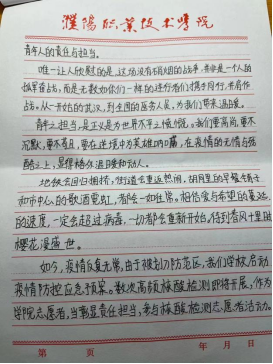 濮阳职业技术学院
青年人的责任与担当。
唯一让人欣慰的是,这场没有硝烟的战争,并非是一个人的
孤军奋战,而是无数如你们一样的逆行者们携手同行,共同作
战。从一开始的武汉,到全国的医务人员,为我们带来温暖。
青年之担当,是正义是为世界不平之倾慌。我们要高尚,要不
沉默,要不畏惧,要在逆境中为英雄呐喊,在疫情的无情与残
酷之上,显得格外温暖和动人。
地铁会回归拥挤,街道会重返热闹,胡同里的早餐铺子
和市中心的歌酒霓虹,都会一如往常。相信爱与希望的蔓延
的速度,一定会超过病毒,一切都会重新开始。待到春风十里时
樱花漫盛世。
如今,疫情反复无常,由于被划分防范区,我们学校启动
疫情防控应急预案。数次高频核酸检测即将开展,作为
学院志愿者,当彰显责任担当,参与核酸检测志愿者活动。
第 页 年 月 日